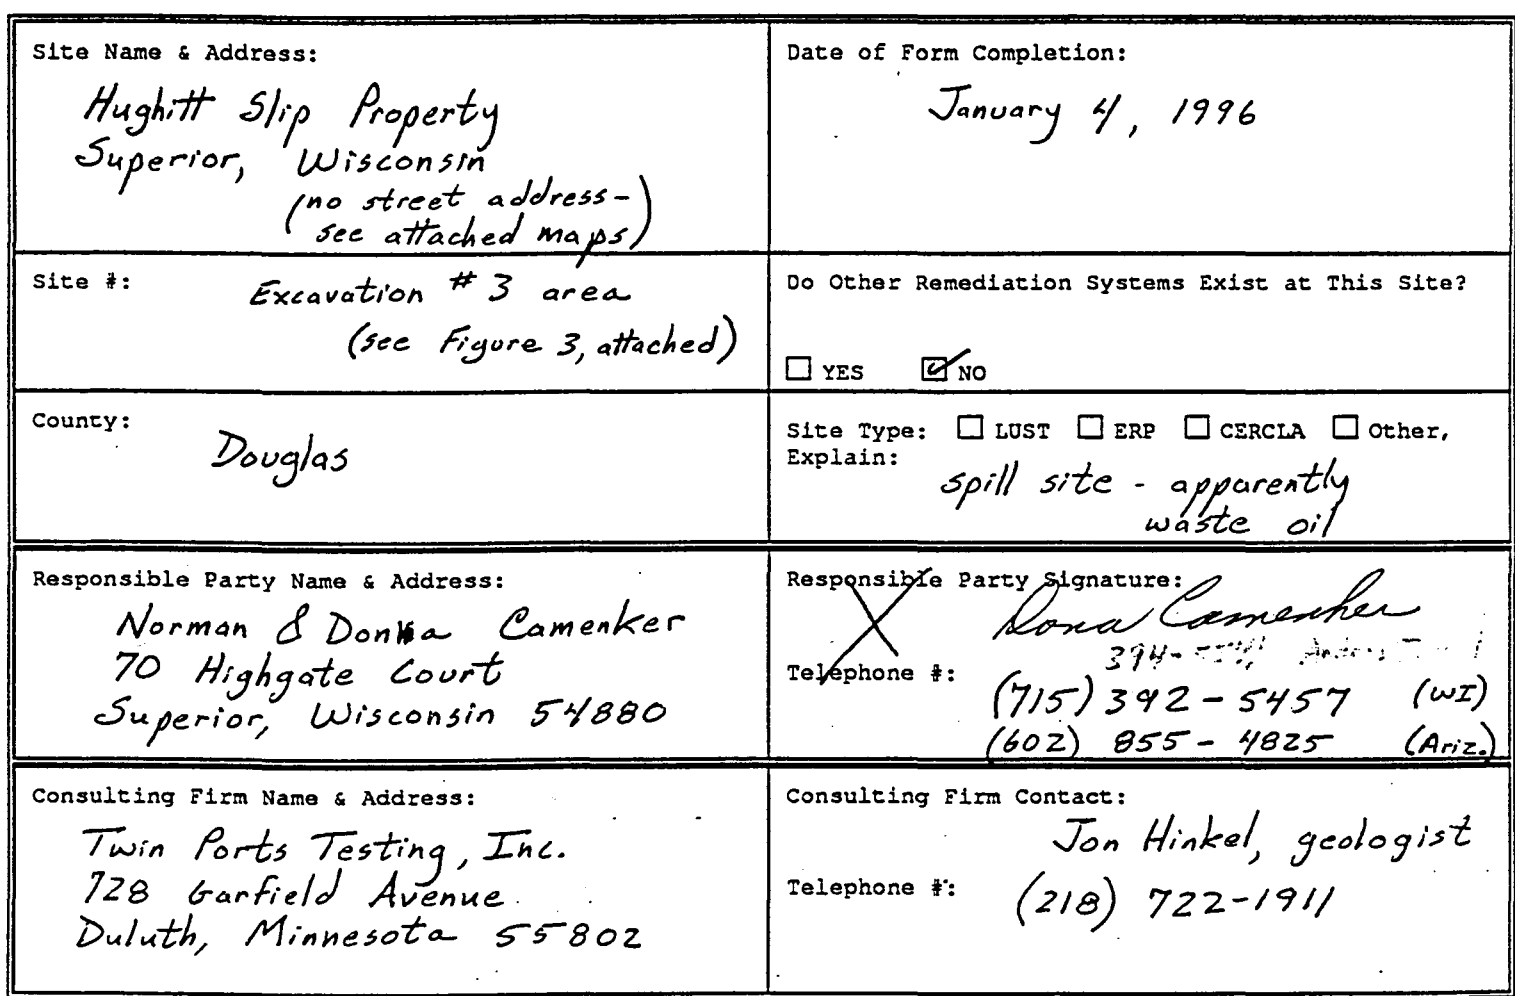 Site Name & Address:
Hughitt Slip Property
Superior, Wisconsin
(no street address-
see attached maps)
Date of Form Completion:
January 4, 1996
Site #:
Excavation #3 area
(see Figure 3, attached)
Do Other Remediation Systems Exist at This Site?
☐ YES ☑ NO
County:
Douglas
Site Type: ☐ LUST ☐ ERP ☐ CERCLA ☐ Other,
Explain:
spill site - apparently
waste oil
Responsible Party Name & Address:
Norman & Donna Camenker
70 Highgate Court
Superior, Wisconsin 54880
Responsible Party Signature:
Dona Camenker
394-
Telephone #:
(715) 392-5457 (WI)
(602) 855-4825 (Ariz.)
Consulting Firm Name & Address:
Twin Ports Testing, Inc.
728 Garfield Avenue
Duluth, Minnesota 55802
Consulting Firm Contact:
Jon Hinkel, geologist
Telephone #:
(218) 722-1911